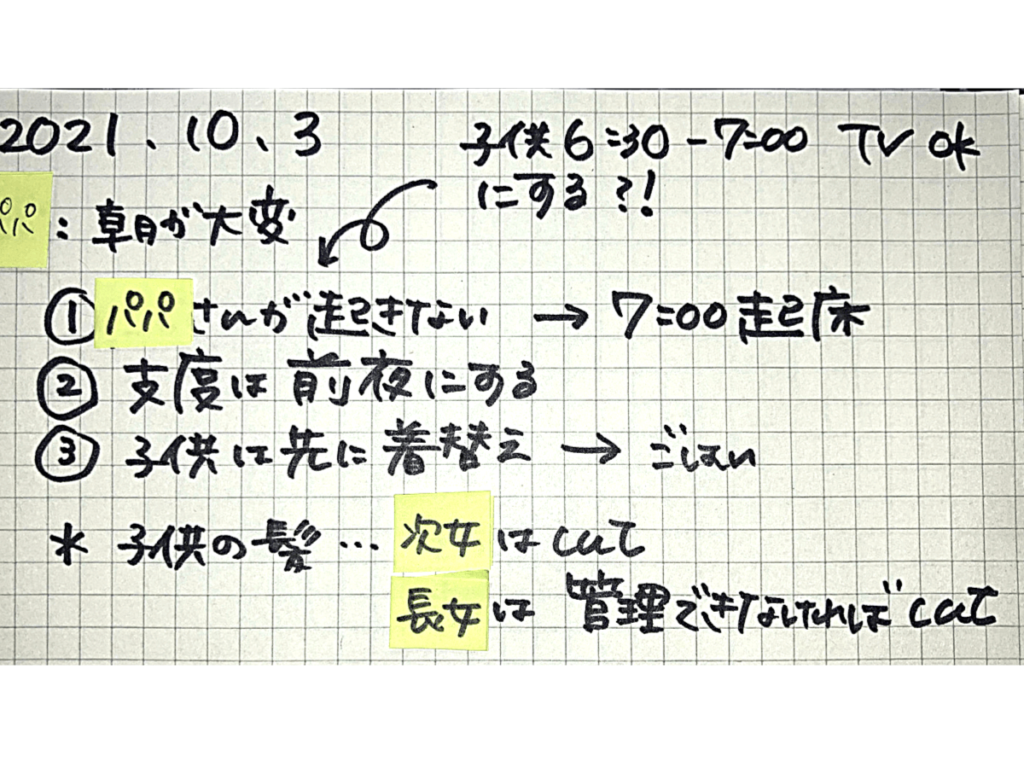 2021.10.3
子供6:30-7:00 TV ok
にする?!
パパ:朝が大変
① パパさんが起きない → 7:00起床
② 支度は前夜にする
③ 子供は先に着替え → ごはん
* 子供の髪… 次女はcut
長女は 管理できなければcut